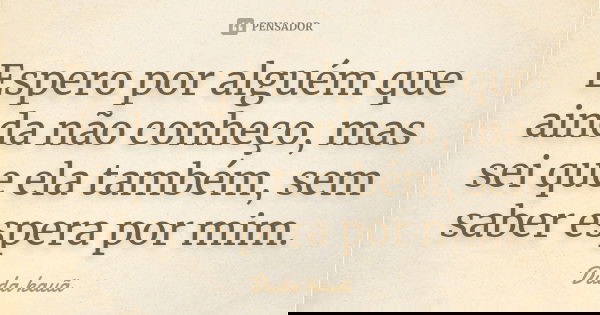 PENSADOR
Espero por alguém que
ainda não conheço, mas
sei que ela também, sem
saber espera por mim.
Duda kauã